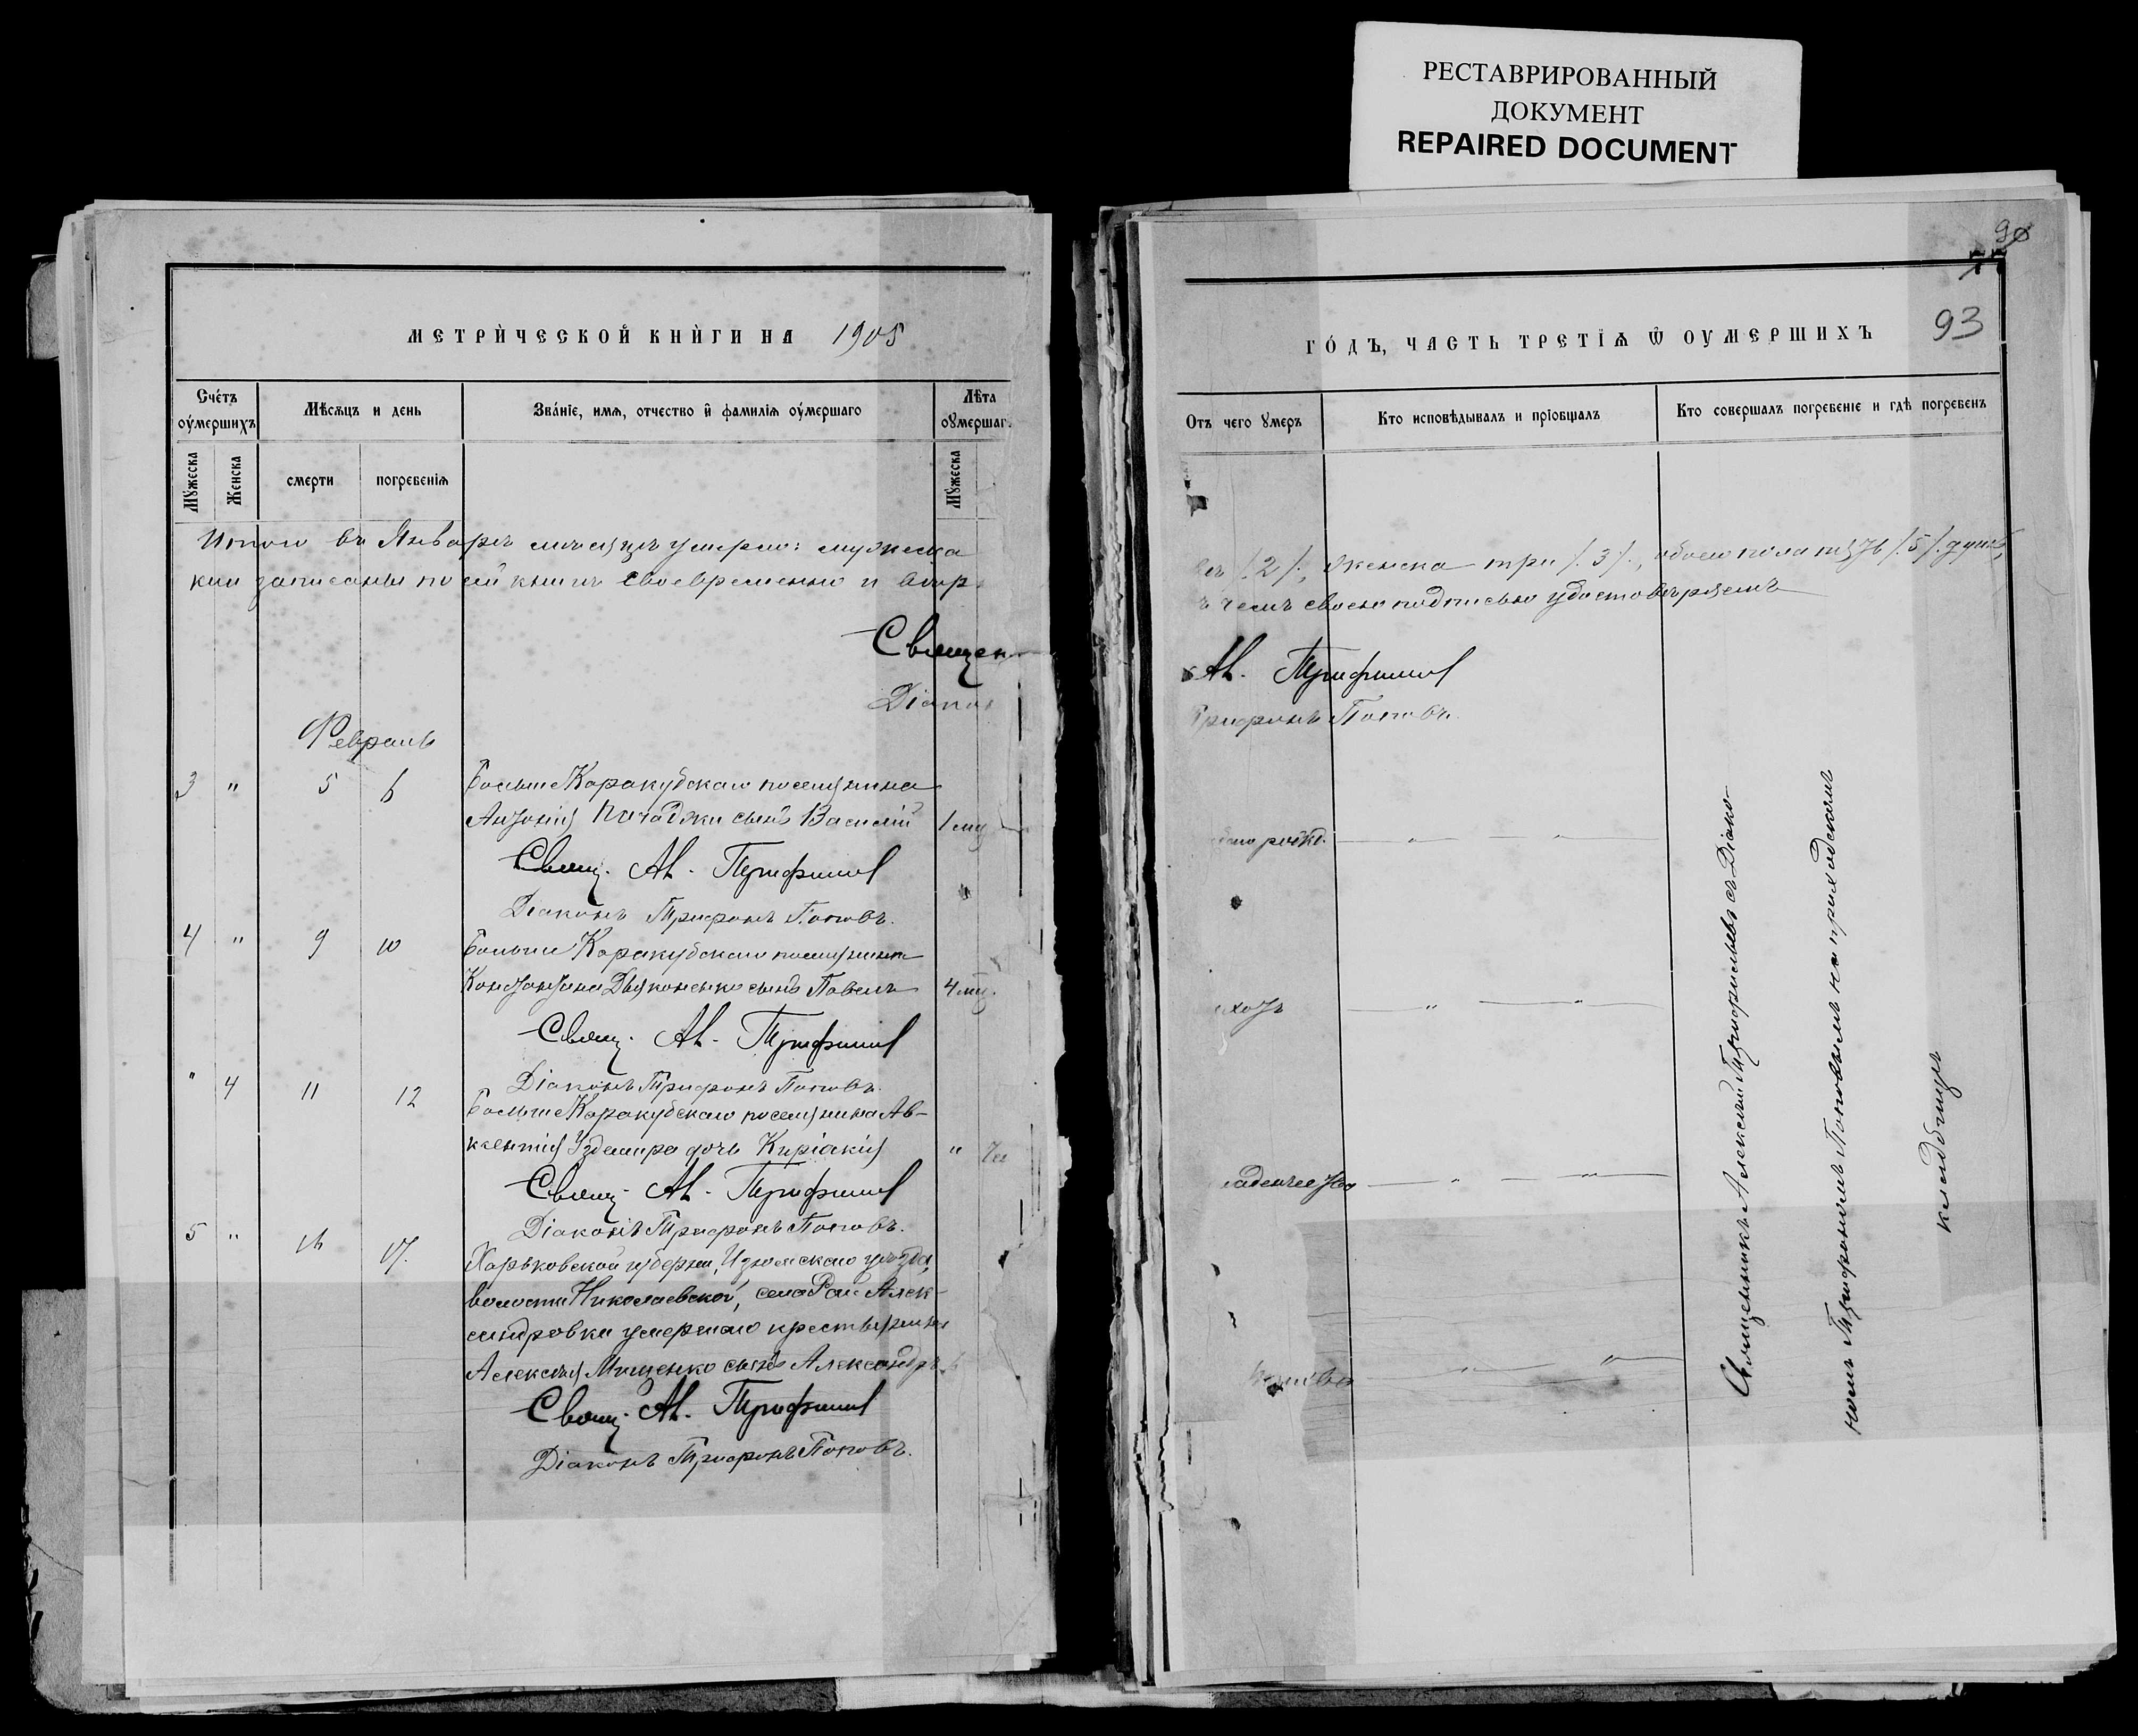 РЕСТАВРИРОВАННЫЙ
ДОКУМЕНТ
REPAIRED DOCUMENT
МЕТРИ́ЧЕСКОЙ КНИ́ГИ НА 1905
Сче́тъ оу́мершихъ
Мѣсѧцъ и день
Зва́нїе, имѧ, отчество и̂ фамилїѧ оу́мершаго
Лѣта оумершаг
Мꙋжеска
Женска
смерти
погребенїѧ
Мꙋжеска
Итого въ Январѣ мѣсяцѣ умерло: мужеска
кои записаны по сей книгѣ своевременно и вѣр
Священ
Діакон
Февраль
3 " 5 6 Больше Каракубскаго поселянина
Антонія сынъ Василій 1 мц
Свящ. Ал. Трифильев
Діаконъ Трифонъ Поповъ.
4 " 9 10 Больше Каракубскаго поселянина
Константина Дьяконенко сынъ Павелъ 4 мц.
Свящ. Ал. Трифильев
Діаконъ Трифонъ Поповъ.
" 4 11 12 Больше Каракубскаго поселянина Ав-
ксентія Уздемира дочь Киріакія "
Свящ. Ал. Трифильев
Діаконъ Трифонъ Поповъ.
5 " 16 17. Харьковской губерніи, Изюмскаго уѣзда,
волости Николаевской, села Рай-Алек-
сандровки умершаго крестьянина
Алексѣя Мищенко сынъ Александръ
Свящ. Ал. Трифильев
Діаконъ Трифонъ Поповъ.
90
77
93
ГО́ДЪ, ЧАСТЬ ТРЕТЇѦ Ѿ ОУМЕРШИХЪ
Отъ чего ꙋмеръ
Кто исповѣдывалъ и прїобщалъ
Кто совершалъ погребенїе и гдѣ погребенъ
/.2/., женска три /.3/., обоего пола пять /.5/. душъ,
ъ чемъ своею подписью удостовѣряемъ
Ал. Трифильев
Трифонъ Поповъ.
рожд. " "
" "
" "
" "
Священникъ Алексѣй Трифильевъ съ Діако-
номъ Трифономъ Поповымъ на приходскомъ
кладбищѣ